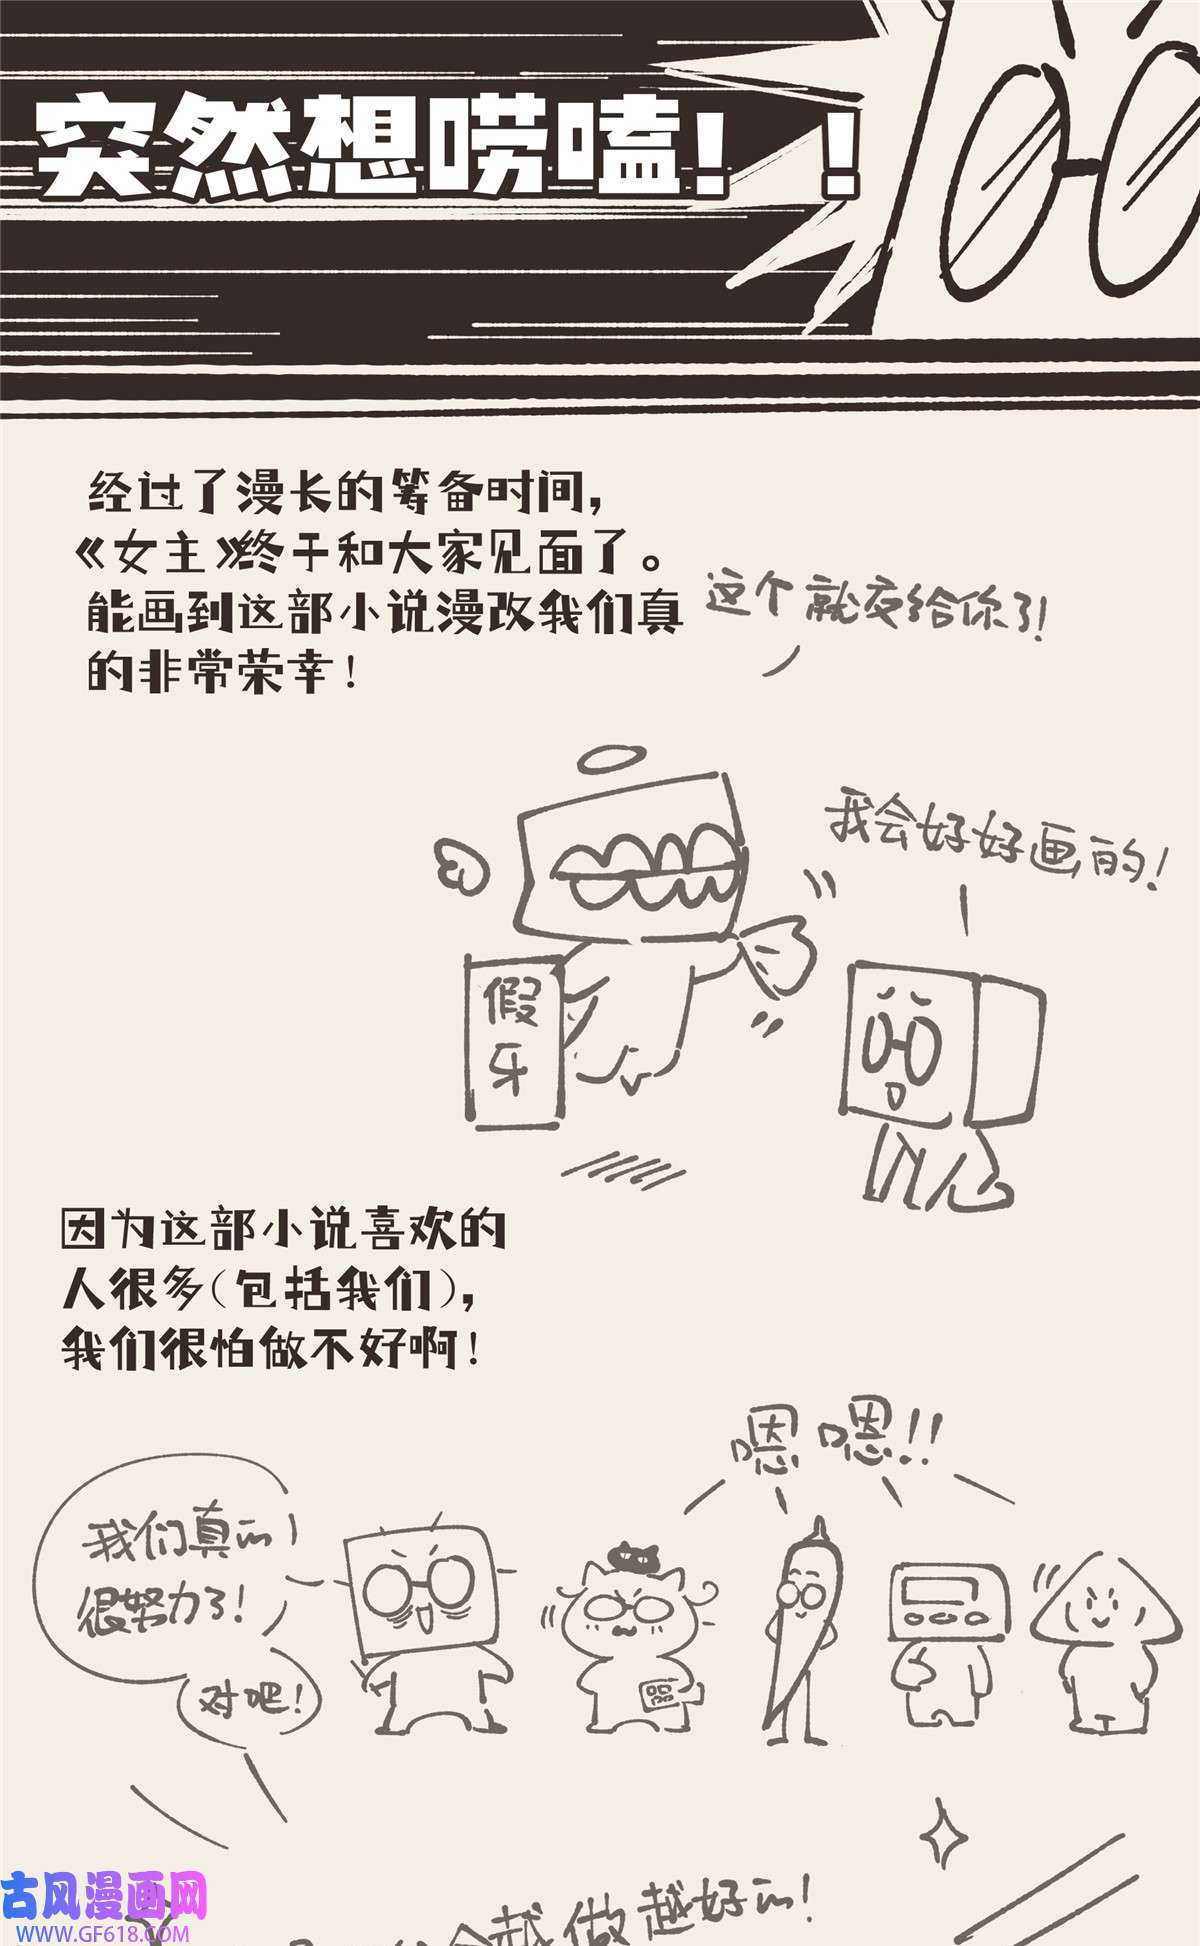 突然想唠嗑！！
经过了漫长的筹备时间，
《女主》终于和大家见面了。
能画到这部小说漫改我们真
的非常荣幸！
这个就交给你了！
我会好好画的！
假
牙
因为这部小说喜欢的
人很多（包括我们），
我们很怕做不好啊！
嗯嗯！！
我们真的
很努力了！
对吧！
会越做越好的！
古风漫画网
WWW.GF618.COM